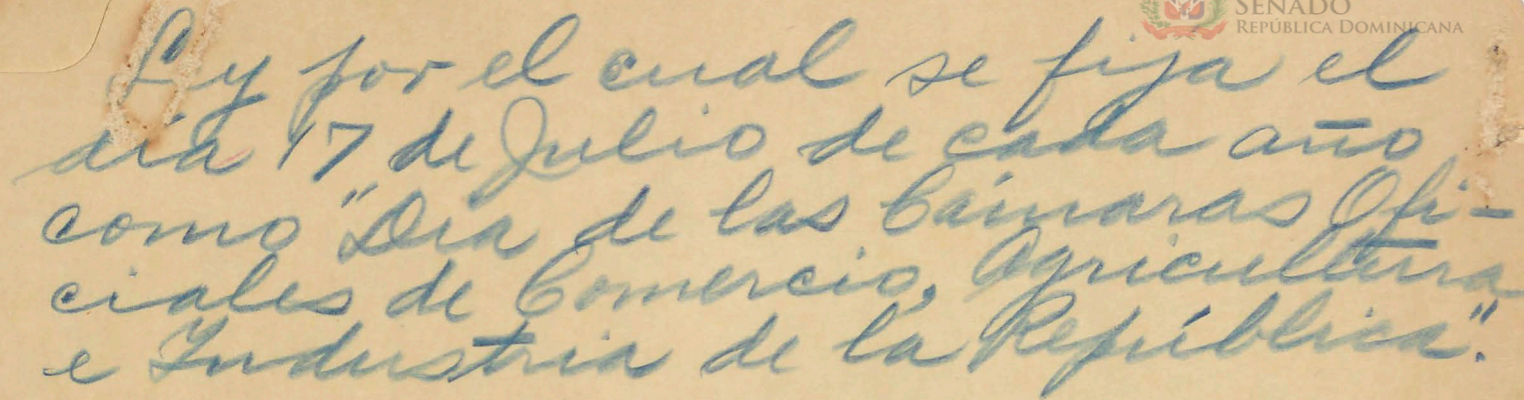 SENADO
REPÚBLICA DOMINICANA
Ley por el cual se fija el
día 17 de Julio de cada año
como "Dia de las Cámaras Ofi-
ciales de Comercio, Agricultura
e Industria de la República".